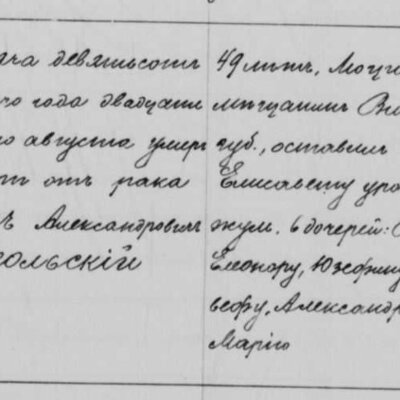 яча девятьсотъ
го года двадцати
го августа умеръ
тъ отъ рака
ъ Александровичъ
польскій
49 лѣтъ,
мѣщанинъ Ви
губ., оставилъ
Елисавету уро
6 дочерей:
Елеонору, Юзефину
зефу, Александр
Марію